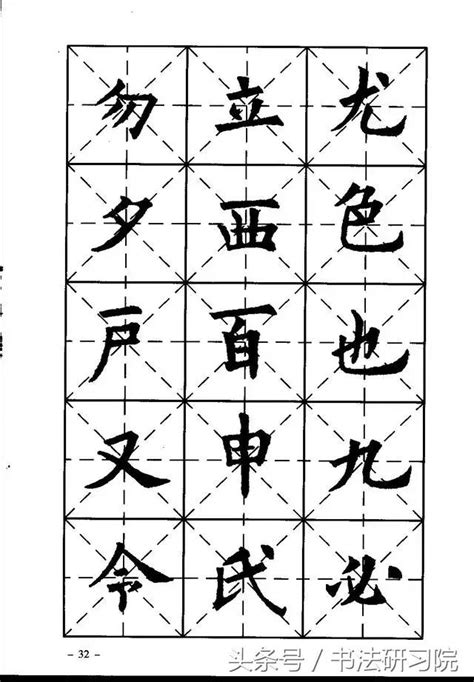 尤色也九必
立西百申氏
勿夕戸又令
- 32 -
头条号 / 书法研习院